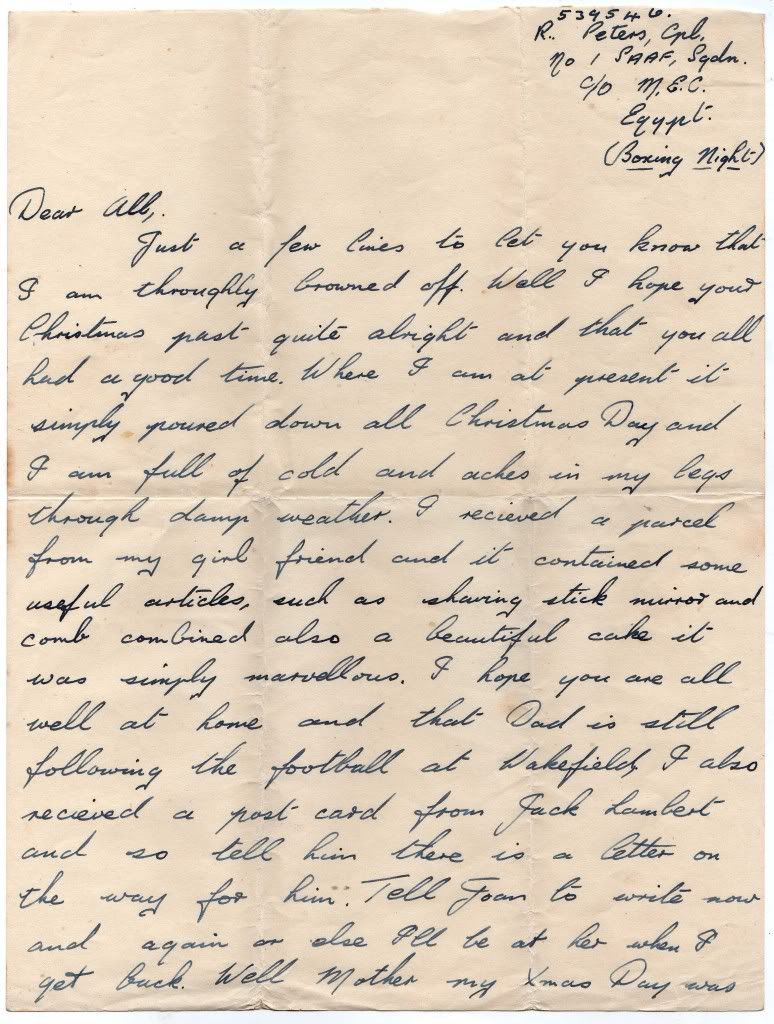 539546.
R. Peters, Cpl,
No 1 SAAF, Sqdn.
c/o M.E.C.
Egypt.
(Boxing Night)
Dear All,
Just a few lines to let you know that
I am throughly browned off. Well I hope your
Christmas past quite alright and that you all
had a good time. Where I am at present it
simply poured down all Christmas Day and
I am full of cold and aches in my legs
through damp weather. I recieved a parcel
from my girl friend and it contained some
useful articles, such as shaving stick mirror and
comb combined also a beautiful cake it
was simply marvellous. I hope you are all
well at home and that Dad is still
following the football at Wakefield, I also
recieved a post card from Jack Lambert
and so tell him there is a letter on
the way for him. Tell Joan to write now
and again or else I'll be at her when I
get back. Well Mother my Xmas Day was